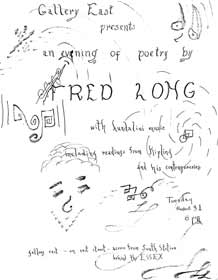 Gallery East
presents
an evening of poetry by
RED LONG
with Kundalini music
including readings from Kipling
and his contemporaries
Tuesday
August 31
gallery east - on east street - across from South Station
behind the ESSEX